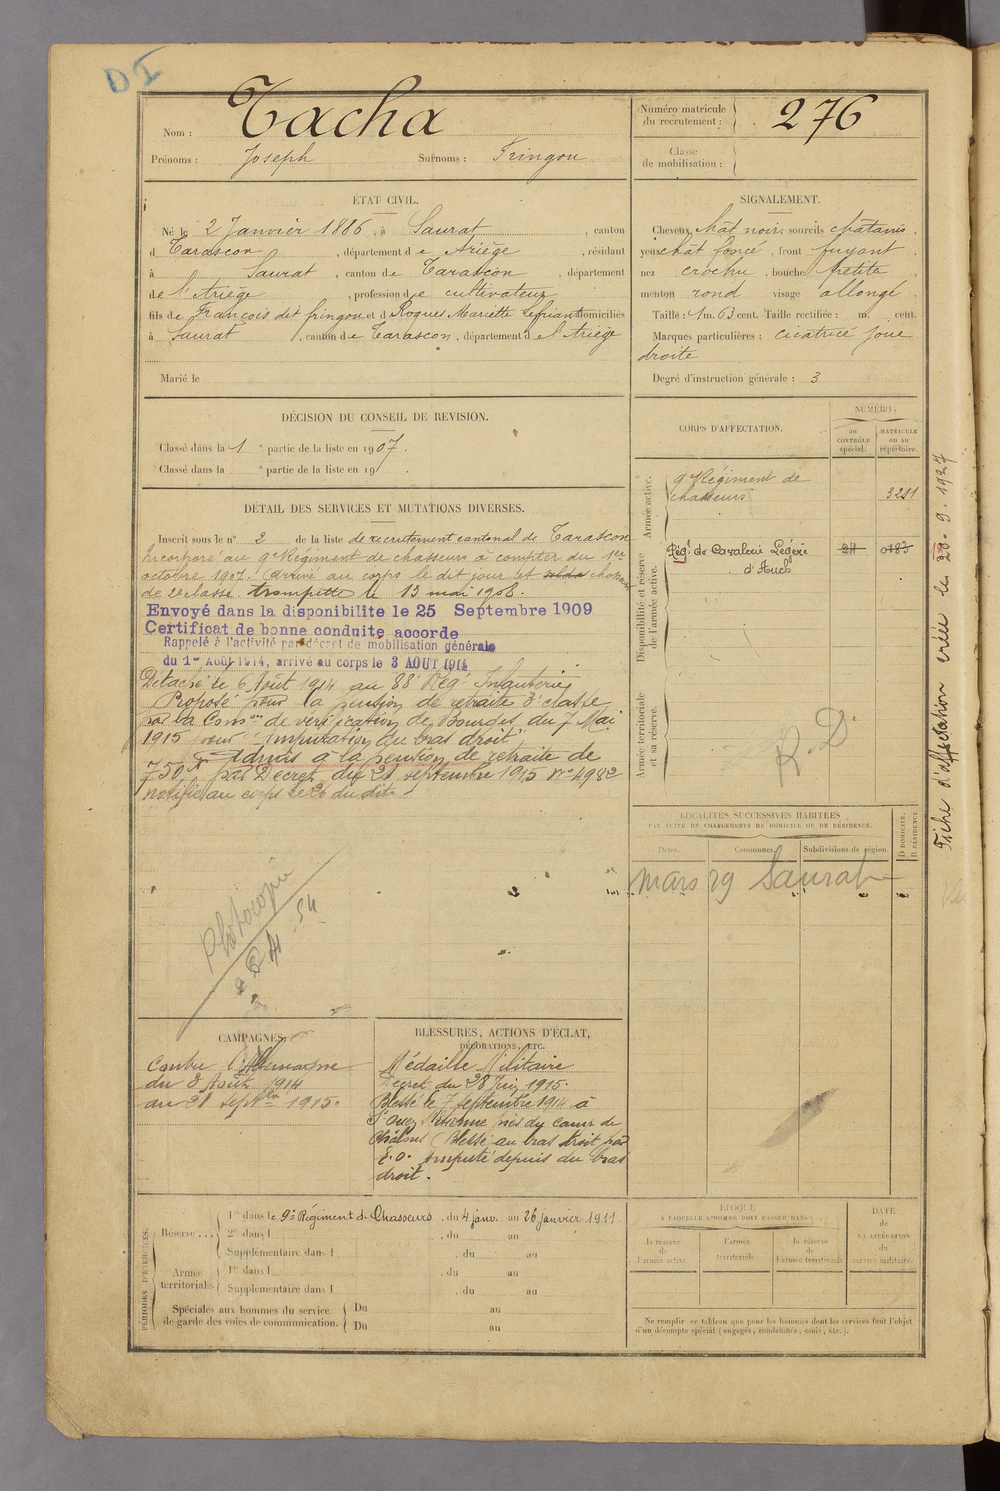 D I
Nom : Tacha
Prénoms : Joseph Surnoms : Fringou
Numéro matricule du recrutement : 276
Classe de mobilisation :
ÉTAT CIVIL.
Né le 2 Janvier 1886, à Saurat, canton
d Tarascon, département de Ariège, résidant
à Saurat, canton de Tarascon, département
de l'Ariège, profession de cultivateur
fils de François dit fringou et d Rogues Mariette domiciliés
à Saurat, canton de Tarascon, département d el Ariège
Marié le
SIGNALEMENT.
Cheveux chât noir, sourcils châtains,
yeux chât foncé, front fuyant,
nez crochu, bouche petite,
menton rond visage allongé.
Taille : 1 m. 63 cent. Taille rectifiée : m. cent.
Marques particulières : cicatrice joue
droite
Degré d'instruction générale : 3
DÉCISION DU CONSEIL DE REVISION.
Classé dans la 1e partie de la liste en 1907.
Classé dans la e partie de la liste en 19 .
DÉTAIL DES SERVICES ET MUTATIONS DIVERSES.
Inscrit sous le n° 2 de la liste de recrutement cantonal de Tarascon
Incorporé au 9e Régiment de chasseurs à compter du 1er
octobre 1907. Arrivé au corps le dit jour et soldat chasseur
de 2e classe. trompette le 13 mai 1908.
Envoyé dans la disponibilite le 25 Septembre 1909
Certificat de bonne conduite accorde
Rappelé à l'activité par décret de mobilisation générale
du 1er Août 1914, arrivé au corps le 3 AOUT 1914
Détaché le 6 Août 1914 au 88e Rég' Infanterie
Proposé pour la pension de retraite 3e classe
par la Comon de vérification de Bourges du 7 Mai
1915 pour "Amputation du bras droit"
Admis à la pension de retraite de
750f par Décret du 21 septembre 1915 N° 4982
notifié au corps le 26 du dit
Photocopie
54
CORPS D'AFFECTATION.
NUMÉRO :
au CONTRÔLE spécial.
MATRICULE ou au répertoire.
Armée active.
9e Régiment de
chasseurs 3211
Disponibilité et réserve de l'armée active.
Régt de Cavalerie Légère 24 0183
d'Auch
Armée territoriale et sa réserve.
R.D.
LOCALITÉS SUCCESSIVES HABITÉES
PAR SUITE DE CHANGEMENTS DE DOMICILE OU DE RÉSIDENCE.
Dates. Communes. Subdivisions de région. D DOMICILE. R RÉSIDENCE
mars 29 Saurat
Fiche d'affectation créée le 28.9.1927
CAMPAGNES.
Contre l'Allemagne
du 3 Août 1914
au 21 septbre 1915.
BLESSURES, ACTIONS D'ÉCLAT,
DÉCORATIONS, ETC.
Médaille Militaire
Décret du 28 Juin 1915.
Blessé le 7 septembre 1914 à
St Ouen Marne près du camp de
Châlons (Blessé au bras droit par
E.O. Amputé depuis du bras
droit.
PÉRIODES D'EXERCICES.
Réserve ... 1re dans le 9e Régiment de Chasseurs, du 4 janv. au 26 janvier 1911
2e dans l , du au
Supplémentaire dans l , du au
Armée territoriale. 1re dans l , du au
Supplémentaire dans l , du au
Spéciales aux hommes du service de garde des voies de communication. Du au
Du au
ÉPOQUE
À LAQUELLE L'HOMME DOIT PASSER DANS :
la réserve de l'armée active
l'armée territoriale.
la réserve de l'armée territoriale
DATE de LA LIBÉRATION du service militaire.
Ne remplir ce tableau que pour les hommes dont les services font l'objet
d'un décompte spécial (engagés, condamnés, omis, etc.).